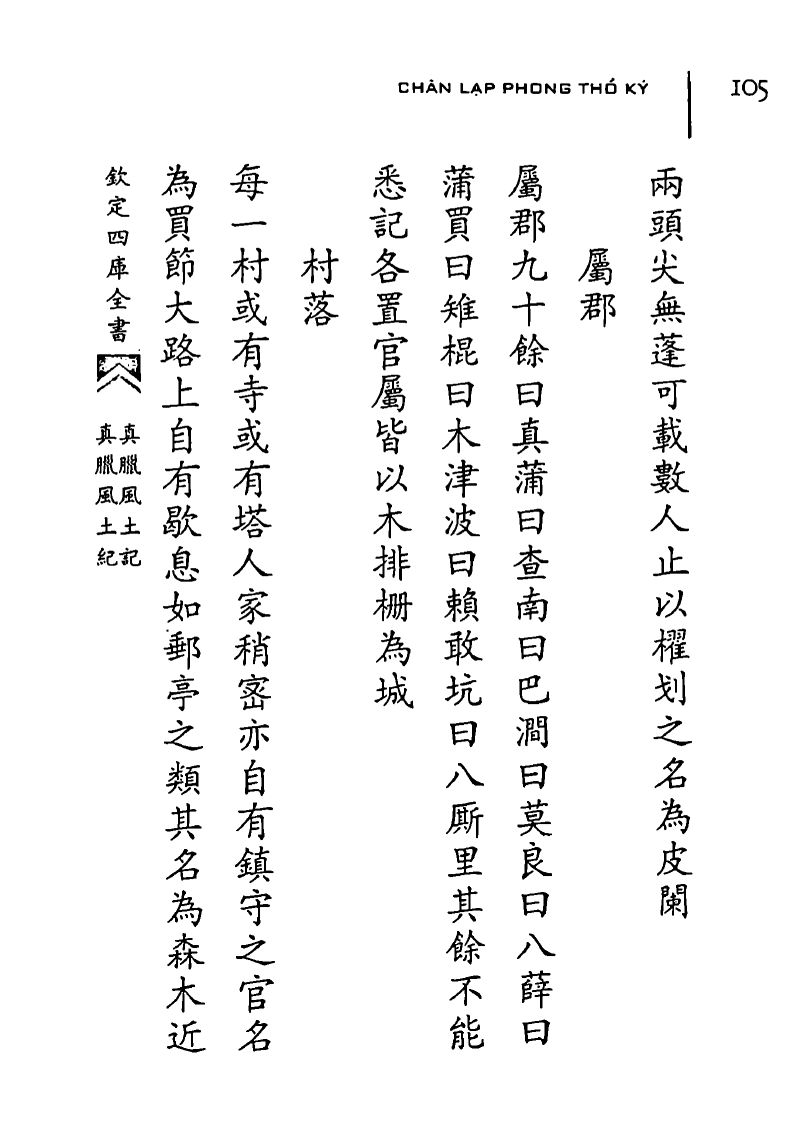 CHÂN LẠP PHONG THỔ KÝ
105
兩頭尖無蓬可載數人止以櫂划之名為皮闌
屬郡
屬郡九十餘曰真蒲曰查南曰巴澗曰莫良曰八薛曰
蒲買曰雉棍曰木津波曰賴敢坑曰八厮里其餘不能
悉記各置官屬皆以木排柵為城
村落
每一村或有寺或有塔人家稍宻亦自有鎮守之官名
為買節大路上自有歇息如郵亭之類其名為森木近
欽定四庫全書
真臘風土記
真臘風土紀